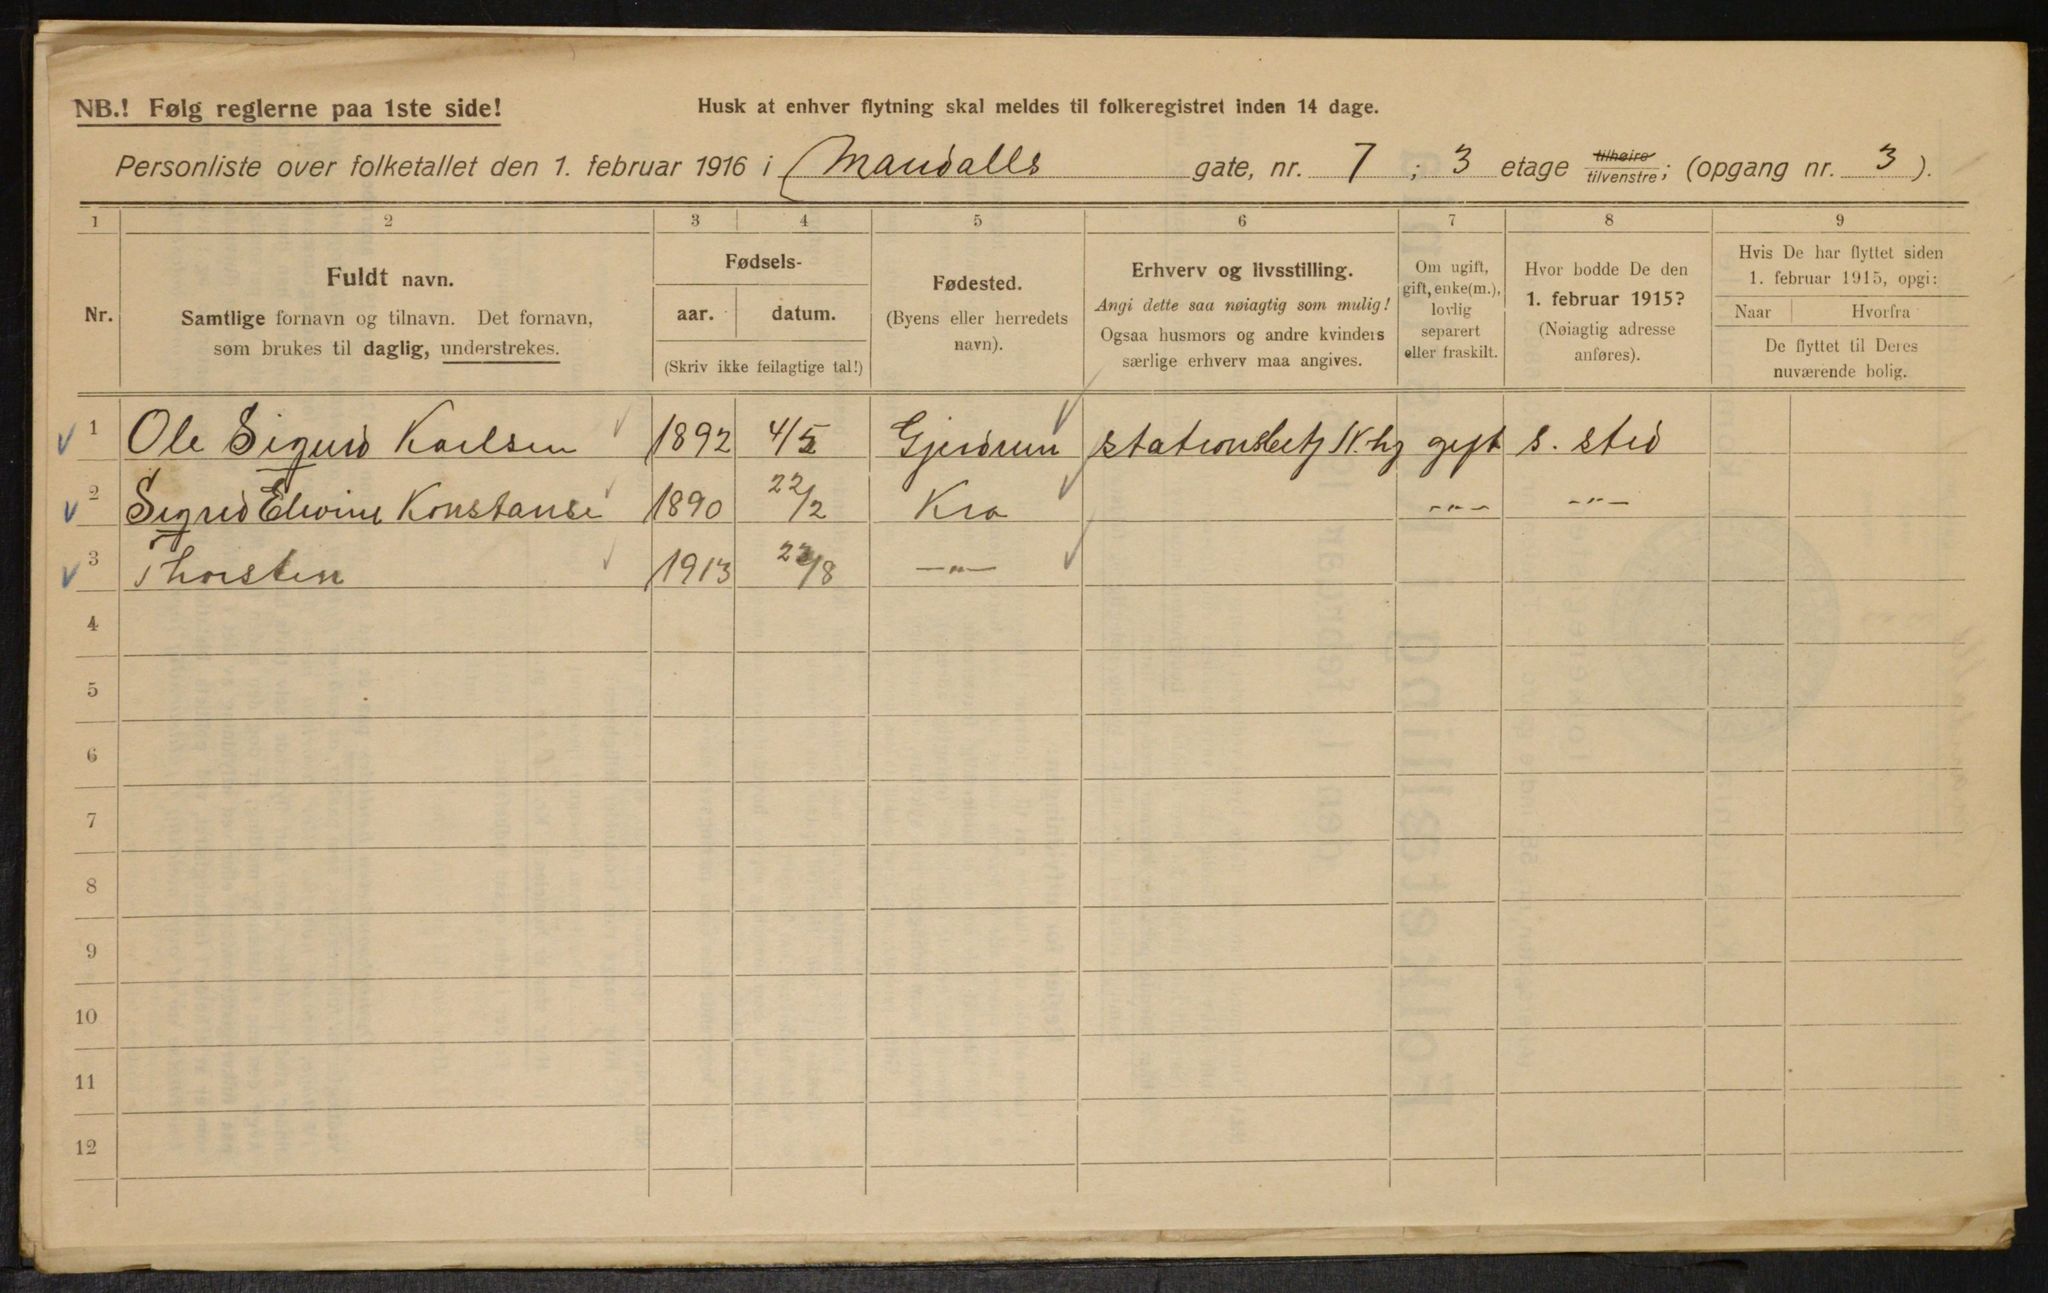 NB.! Følg reglerne paa 1ste side!
Husk at enhver flytning skal meldes til folkeregistret inden 14 dage.
Personliste over folketallet den 1. februar 1916 i Mandalls gate, nr. 7 ; 3 etage tilhøire tilvenstre; (opgang nr. 3 ).
1 2 3 4 5 6 7 8 9
Nr.
Fuldt navn.
Samtlige fornavn og tilnavn. Det fornavn,
som brukes til daglig, understrekes.
Fødsels-
aar. datum.
(Skriv ikke feilagtige tal!)
Fødested.
(Byens eller herredets
navn).
Erhverv og livsstilling.
Angi dette saa nøiagtig som mulig!
Ogsaa husmors og andre kvinders
særlige erhverv maa angives.
Om ugift,
gift, enke(m.),
lovlig
separert
eller fraskilt.
Hvor bodde De den
1. februar 1915?
(Nøiagtig adresse
anføres).
Hvis De har flyttet siden
1. februar 1915, opgi:
Naar Hvorfra
De flyttet til Deres
nuværende bolig.
1 Ole Sigurd Karlsen 1892 4/5 Gjerdrum gift s. sted
2 Sigrid Elvine Konstanse 1890 22/2 Kra -"- -"-
3 Thorsten 1913 /8 -"-
4
5
6
7
8
9
10
11
12